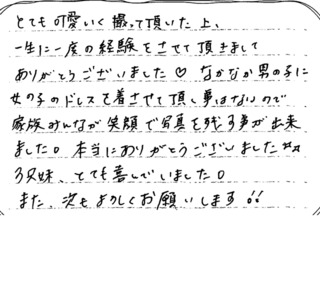 とても可愛いく撮って頂いた上、
一生に一度の経験をさせて頂きまして
ありがとうございました♡ なかなか男の子に
女の子のドレスを着させて頂く事はないので
家族みんなが笑顔で写真を残す事が出来
ました。本当にありがとうございました☆☆
3兄妹、とても喜んでいました。
また、次もよろしくお願いします!!